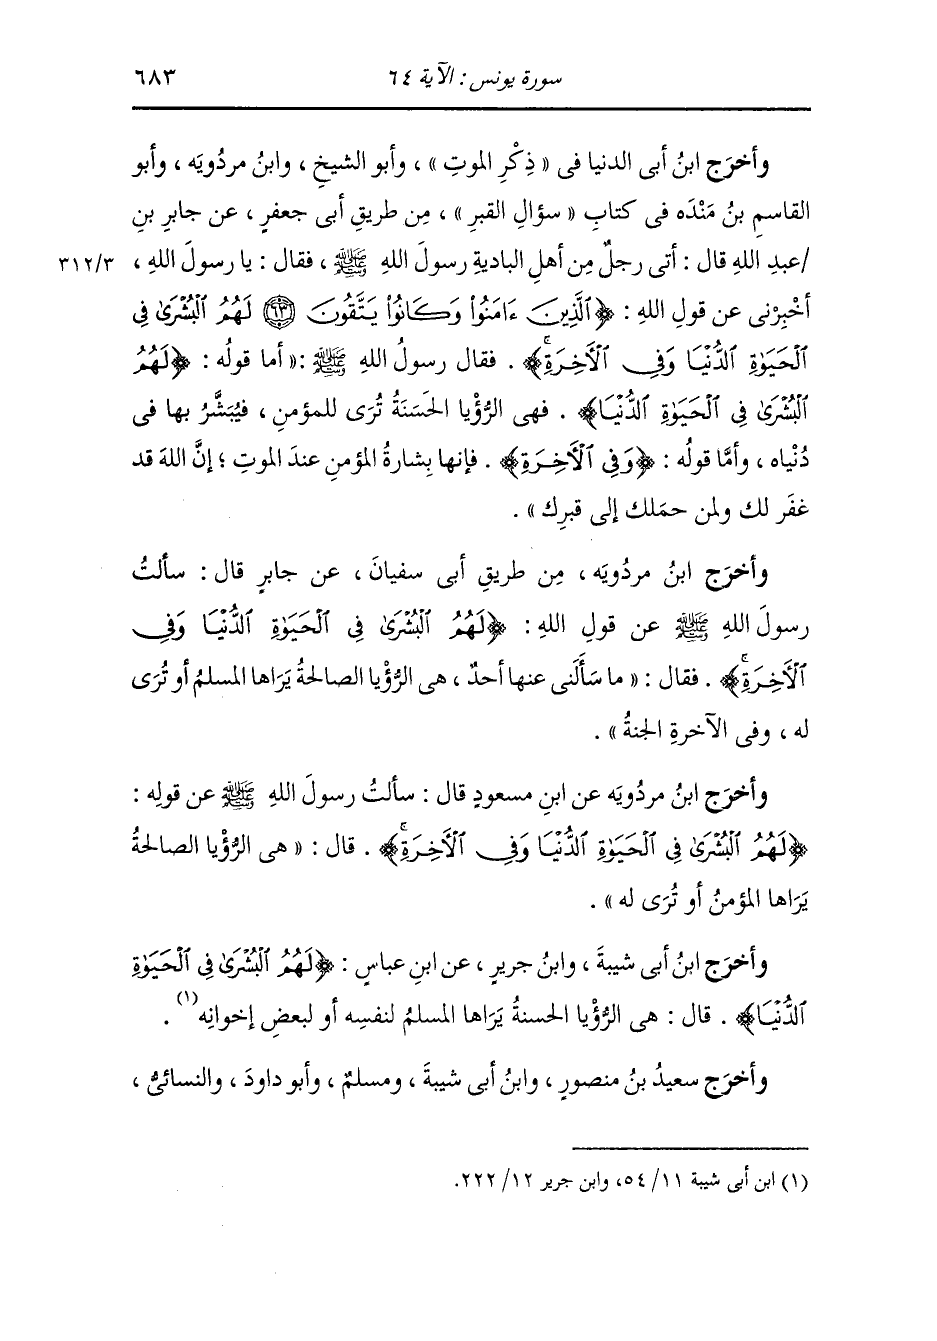 سورة يونس : الآية ٦٤ ٦٨٣
وأخرَج ابنُ أبى الدنيا فى « ذِكْرِ الموتِ » ، وأبو الشيخِ ، وابنُ مردُويَه ، وأبو
القاسمِ بنُ مَنْدَه فى كتابِ « سؤالِ القبرِ » ، مِن طريقِ أبى جعفرٍ ، عن جابرِ بنِ
/عبدِ اللهِ قال : أتى رجلٌ مِن أهلِ الباديةِ رسولَ اللهِ ﷺ ، فقال : يا رسولَ اللهِ ، ٣١٢/٣
أخْبِرْنى عن قولِ اللهِ : ﴿ٱلَّذِينَ ءَامَنُوا۟ وَكَانُوا۟ يَتَّقُونَ ﴿٦٣﴾ لَهُمُ ٱلْبُشْرَىٰ فِى
ٱلْحَيَوٰةِ ٱلدُّنْيَا وَفِى ٱلْأَخِرَةِۚ﴾ . فقال رسولُ اللهِ ﷺ :« أما قولُه : ﴿لَهُمُ
ٱلْبُشْرَىٰ فِى ٱلْحَيَوٰةِ ٱلدُّنْيَا﴾ . فهى الرُّؤْيا الحَسَنَةُ تُرَى للمؤمنِ ، فيُبَشَّرُ بها فى
دُنْياه ، وأمَّا قولُه : ﴿وَفِى ٱلْأَخِرَةِ﴾ . فإنها بِشارةُ المؤمنِ عندَ الموتِ ؛ إنَّ اللهَ قد
غفَر لك ولمن حمَلك إلى قبرِك » .
وأخرَج ابنُ مردُويَه ، مِن طريقِ أبى سفيانَ ، عن جابرٍ قال : سألتُ
رسولَ اللهِ ﷺ عن قولِ اللهِ : ﴿لَهُمُ ٱلْبُشْرَىٰ فِى ٱلْحَيَوٰةِ ٱلدُّنْيَا وَفِى
ٱلْأَخِرَةِۚ﴾ . فقال : « ما سَأَلَنى عنها أحدٌ ، هى الرُّؤْيا الصالحةُ يَرَاها المسلمُ أو تُرَى
له ، وفى الآخرةِ الجنةُ » .
وأخرَج ابنُ مردُويَه عن ابنِ مسعودٍ قال : سألتُ رسولَ اللهِ ﷺ عن قولِه :
﴿لَهُمُ ٱلْبُشْرَىٰ فِى ٱلْحَيَوٰةِ ٱلدُّنْيَا وَفِى ٱلْأَخِرَةِۚ﴾ . قال : « هى الرُّؤْيا الصالحةُ
يَرَاها المؤمنُ أو تُرَى له » .
وأخرَج ابنُ أبى شيبةَ ، وابنُ جريرٍ ، عن ابنِ عباسٍ : ﴿لَهُمُ ٱلْبُشْرَىٰ فِى ٱلْحَيَوٰةِ
ٱلدُّنْيَا﴾ . قال : هى الرُّؤْيا الحسنةُ يَرَاها المسلمُ لنفسِه أو لبعضِ إخوانِه(١) .
وأخرَج سعيدُ بنُ منصورٍ ، وابنُ أبى شيبةَ ، ومسلمٌ ، وأبو داودَ ، والنسائىُّ ،
(١) ابن أبى شيبة ١١/ ٥٤، وابن جرير ١٢/ ٢٢٢.